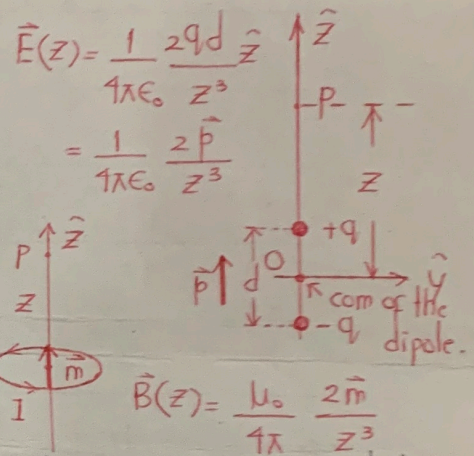 E⃗(z) = 1/4πϵ₀ 2qd/z³ ẑ
= 1/4πϵ₀ 2p⃗/z³
ẑ
-P-
z
+q
O
d
p⃗
ŷ
com of the
dipole.
-q
ẑ
P
z
m⃗
I
B⃗(z) = μ₀/4π 2m⃗/z³